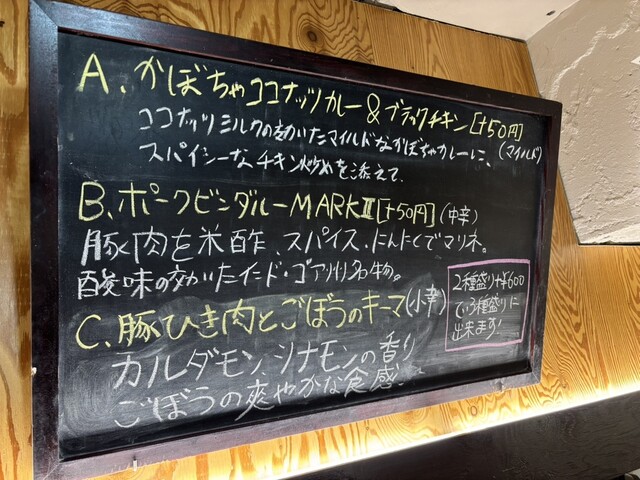 A. かぼちゃココナッツカレー&ブラックチキン[+50円]
(マイルド)
ココナッツミルクの効いたマイルドなかぼちゃカレーに、
スパイシーなチキン炒めを添えて、
B. ポークビンダルーMARKⅡ[+50円](中辛)
豚肉を米酢、スパイス、にんにくでマリネ。
酸味の効いたインド・ゴア州名物。
C. 豚ひき肉とごぼうのキーマ(小辛)
カルダモン、シナモンの香り
ごぼうの爽やかな食感
2種盛り+¥600
で、3種盛りに
出来ます!